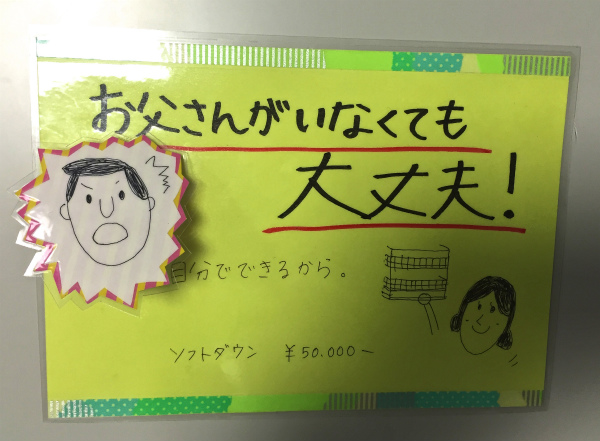 お父さんがいなくても
大丈夫!
自分でできるから。
ソフトダウン ¥50.000-